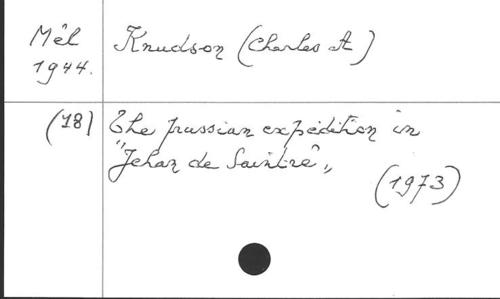 Mêl
1944.
Knudson (Charles A)
(18)
The prussian expédition in
"Jehan de Saintré"
(1973)